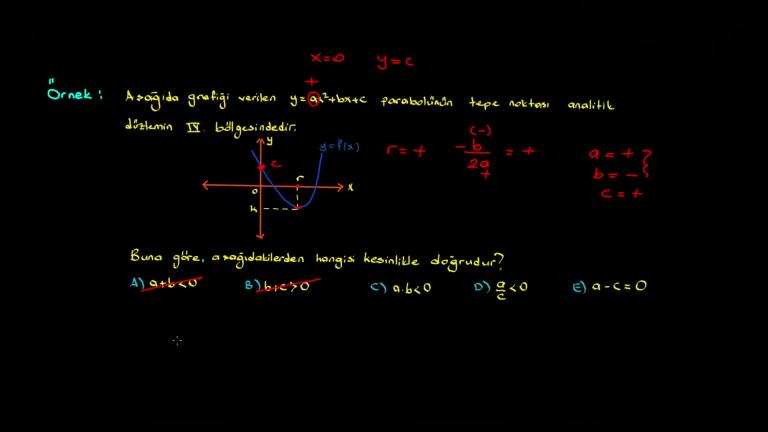 x=0 y=c
+
Örnek: Aşağıda grafiği verilen y=ax²+bx+c parabolünün tepe noktası analitik
düzlemin IV. bölgesindedir.
y y=f(x)
c
r
o x
k
(-)
r=+ -b/2a = +
+
a=+
b=-
c=+
Buna göre, aşağıdakilerden hangisi kesinlikle doğrudur?
A) a+b<0 B) b+c>0 C) a.b<0 D) a/c<0 E) a-c=0